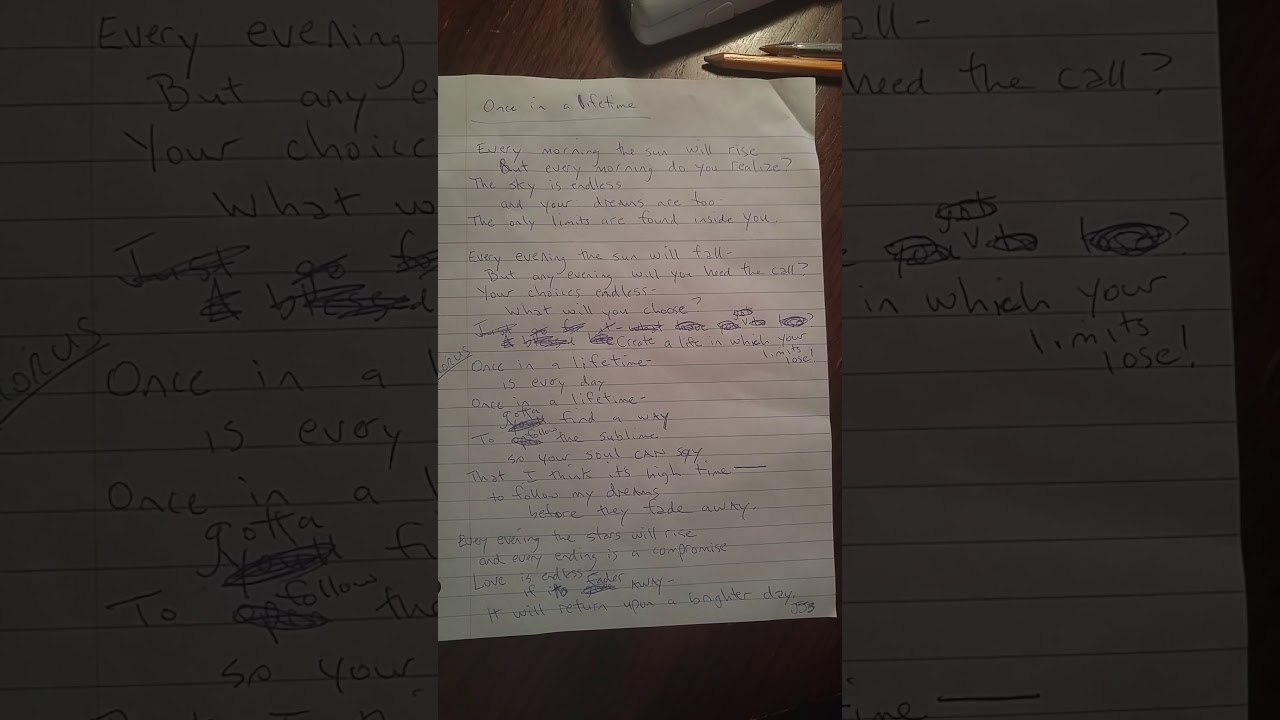 Once in a lifetime
Every morning the sun will rise
But every morning do you realize?
The sky is endless
and your dreams are too.
The only limits are found inside you.
Every evening the sun will fall-
But any evening will you heed the call?
Your choices endless-
What will you choose?
Just go for
a blessed Create a life in which your
limits
lose!
Once in a lifetime-
is every day
Once in a lifetime-
gotta
find a way
To follow the sublime
so your soul CAN say
That I think its high time—
to follow my dreams
before they fade away.
Every evening the stars will rise
and every ending is a compromise
Love is endless
if it fades away-
It will return upon a brighter day.
JJB